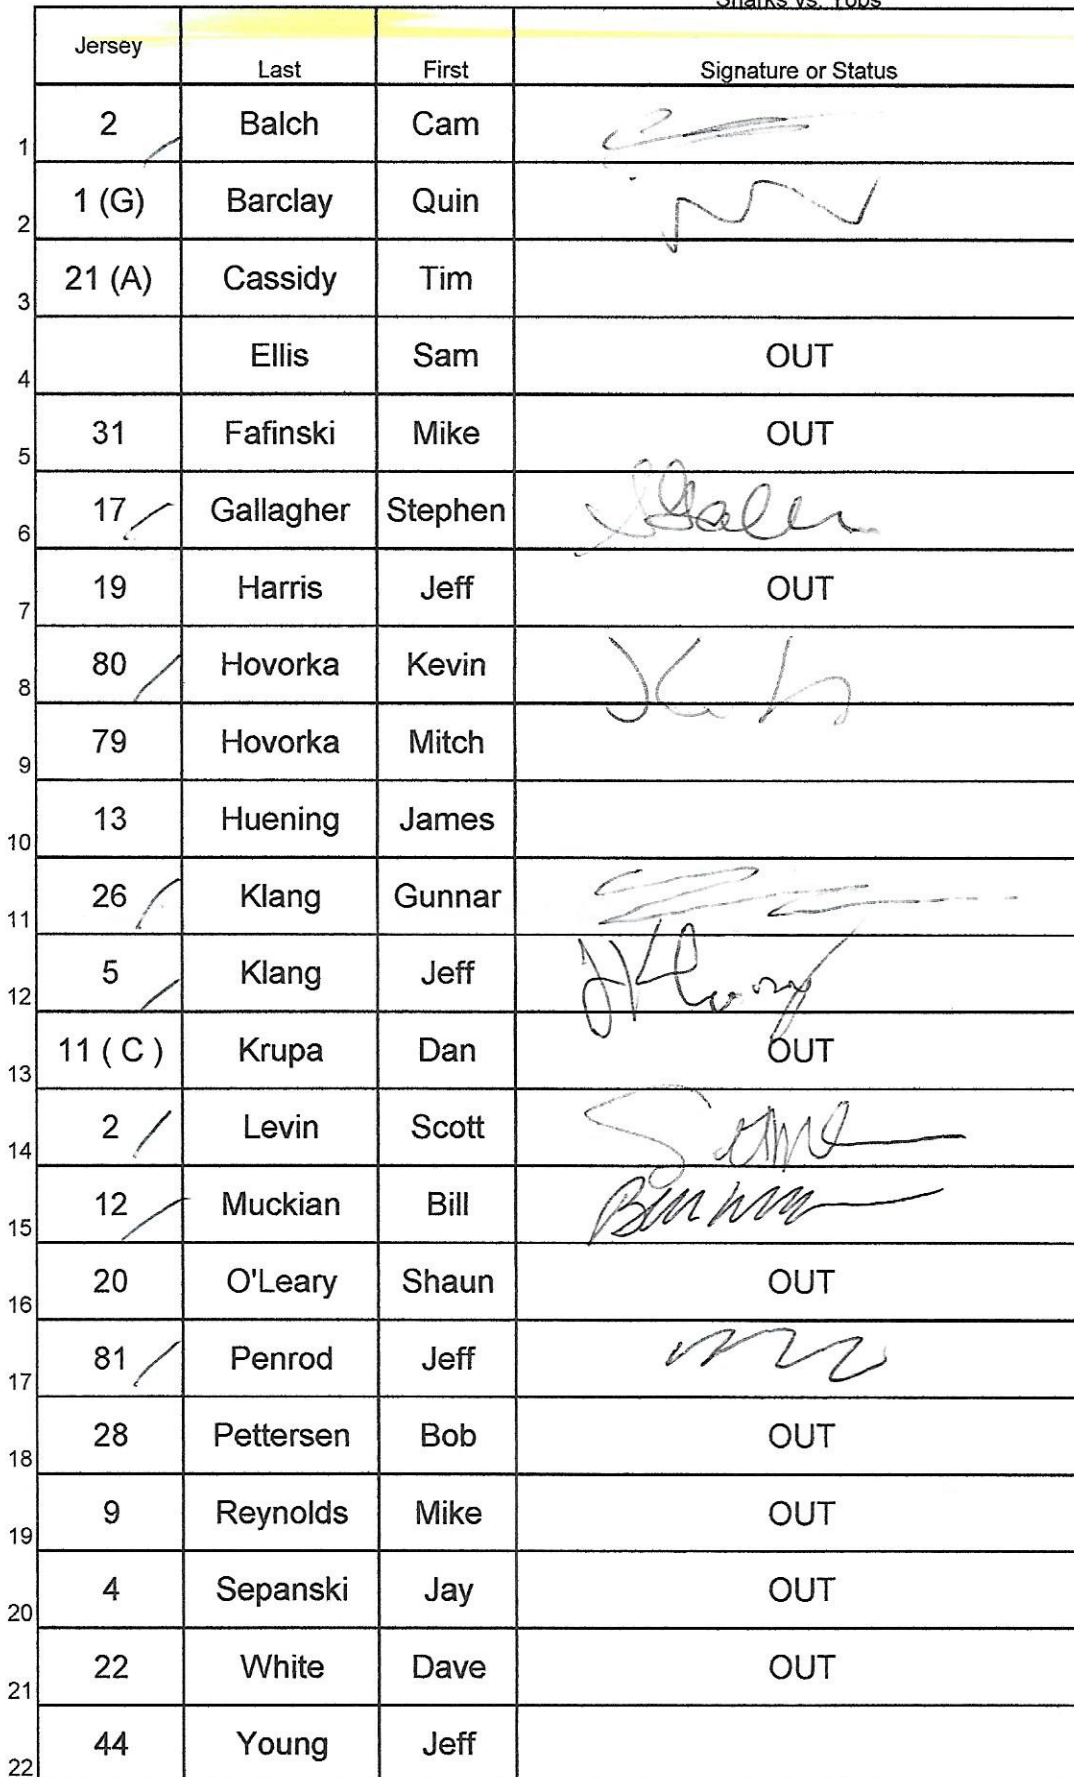 Sharks vs. Yobs
Jersey Last First Signature or Status
1 2 Balch Cam
2 1 (G) Barclay Quin
3 21 (A) Cassidy Tim
4 Ellis Sam OUT
5 31 Fafinski Mike OUT
6 17 Gallagher Stephen
7 19 Harris Jeff OUT
8 80 Hovorka Kevin
9 79 Hovorka Mitch
10 13 Huening James
11 26 Klang Gunnar
12 5 Klang Jeff
13 11 ( C ) Krupa Dan OUT
14 2 Levin Scott
15 12 Muckian Bill
16 20 O'Leary Shaun OUT
17 81 Penrod Jeff
18 28 Pettersen Bob OUT
19 9 Reynolds Mike OUT
20 4 Sepanski Jay OUT
21 22 White Dave OUT
22 44 Young Jeff